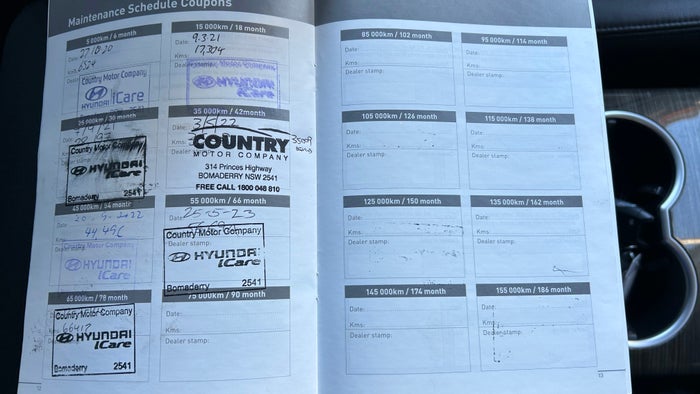 Maintenance Schedule Coupons
5 000km / 6 month
Date:
Kms:
Country Motor Company
HYUNDAI iCare
15 000km / 18 month
Date: 9.3.21
Kms: 17,304
Dealer stamp:
HYUNDAI
iCare
25 000km / 30 month
Country Motor Company
HYUNDAI
iCare
Bomaderry 2541
35 000km / 42month
Date: 3/5/22
Kms:
COUNTRY
MOTOR COMPANY
314 Princes Highway
BOMADERRY NSW 2541
FREE CALL 1800 048 810
45 000km / 54 month
Date:
Kms:
Country Motor Company
HYUNDAI
iCare
55 000km / 66 month
25-5-23
Country Motor Company
Dealer stamp:
HYUNDAI
iCare
Bomaderry 2541
65 000km / 78 month
Country Motor Company
Kms: 66412
HYUNDAI
iCare
Bomaderry 2541
75 000km / 90 month
Date:
Kms:
Dealer stamp:
12
85 000km / 102 month
Date:
Kms:
Dealer stamp:
95 000km / 114 month
Date:
Kms:
Dealer stamp:
105 000km / 126 month
Date:
Kms:
Dealer stamp:
115 000km / 138 month
Date:
Kms:
Dealer stamp:
125 000km / 150 month
Date:
Kms:
Dealer stamp:
135 000km / 162 month
Date:
Kms:
Dealer stamp:
145 000km / 174 month
Date:
Kms:
Dealer stamp:
155 000km / 186 month
Date:
Kms:
Dealer stamp:
13